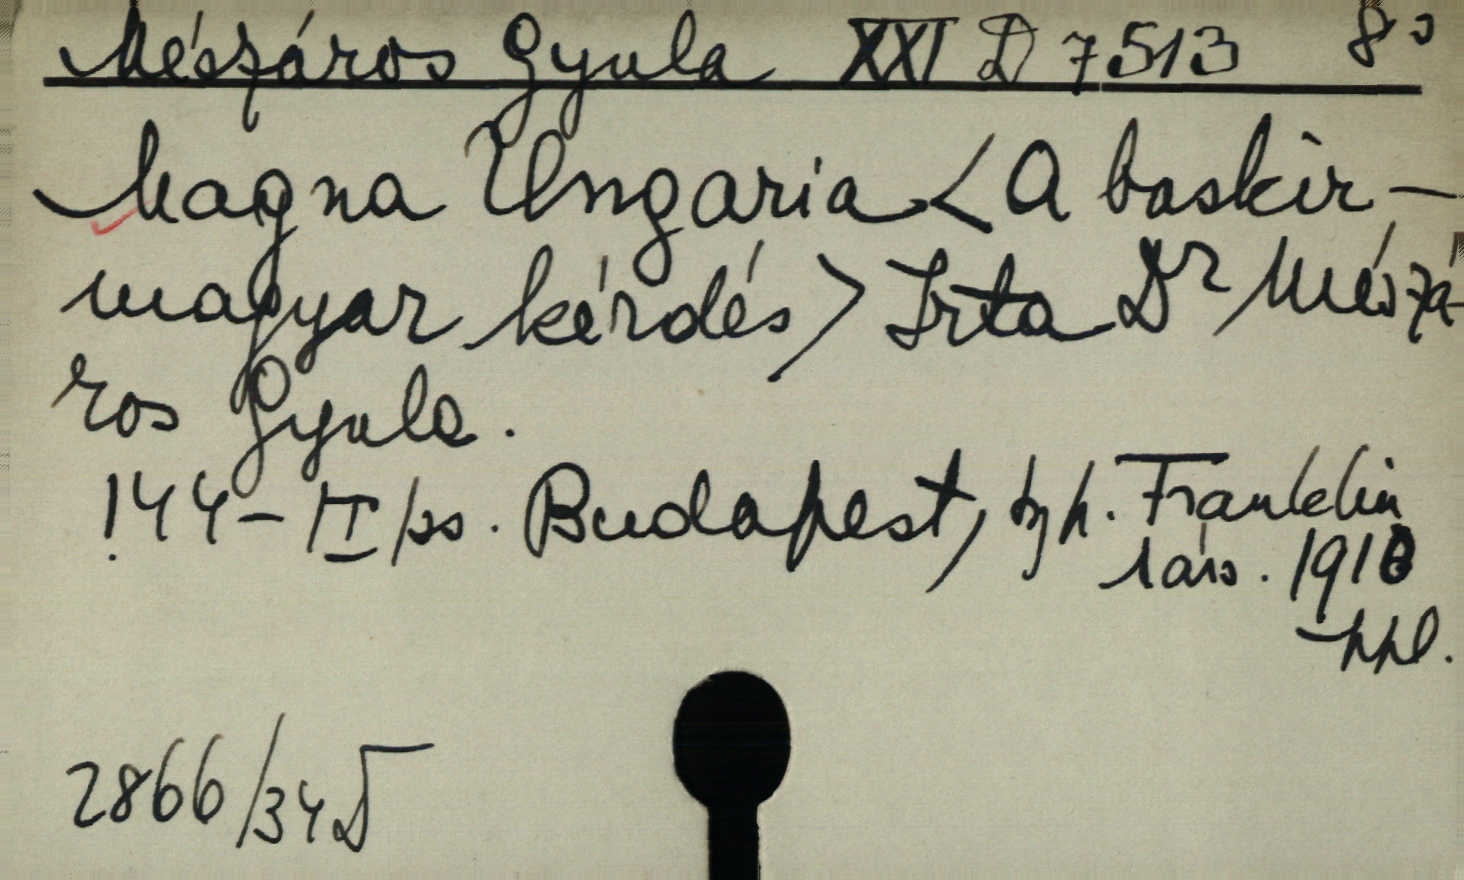 Mészáros Gyula XXI D 7513 8º
Magna Ungaria <A baskir-
magyar kérdés> Irta Dr Mészá-
ros Gyula.
144-II/ss. Budapest, Franklin
társ. 1910
ppl.
2866/34